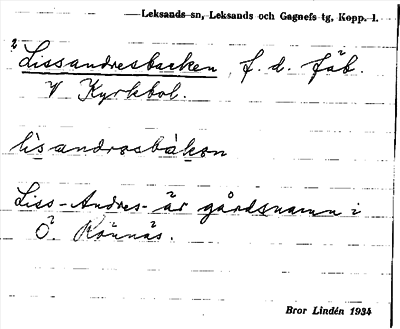 Leksands sn, Leksands och Gagnefs tg, Kopp. l.
Lissandresbacken, f. d. fäb.
V Kyrkbol.
lisandrosbàkan
Liss-Andres- är gårdsnamn i
Ö. Rönnäs.
Bror Lindén 1934